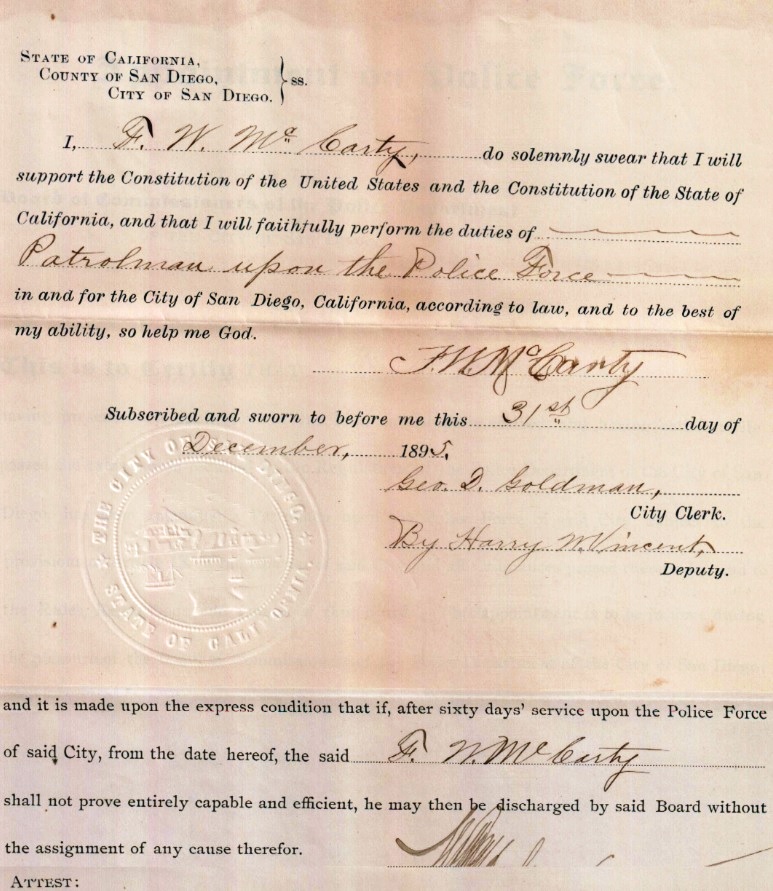 STATE OF CALIFORNIA,
COUNTY OF SAN DIEGO,
CITY OF SAN DIEGO.
ss.
I, F. W. McCarty, do solemnly swear that I will
support the Constitution of the United States and the Constitution of the State of
California, and that I will faithfully perform the duties of
Patrolman upon the Police Force
in and for the City of San Diego, California, according to law, and to the best of
my ability, so help me God.
F. W. McCarty
Subscribed and sworn to before me this 31st day of
December, 1895.
Geo. D. Goldman,
City Clerk.
By Harry W. Vincent,
Deputy.
THE CITY OF SAN DIEGO.
STATE OF CALIFORNIA.
and it is made upon the express condition that if, after sixty days' service upon the Police Force
of said City, from the date hereof, the said F. W. McCarty
shall not prove entirely capable and efficient, he may then be discharged by said Board without
the assignment of any cause therefor.
ATTEST: